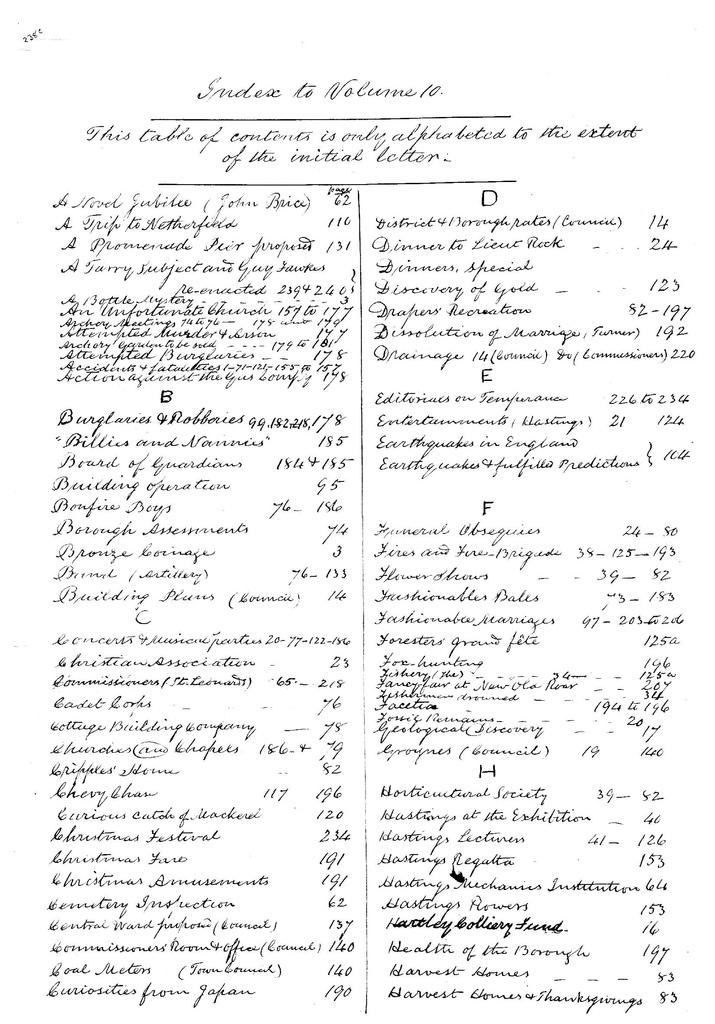 238c
Index to Volume 10.
This table of contents is only alphabeted to the extent
of the initial letter.
page
A Novel Jubilee (John Brice) 62
A Trip to Netherfield 110
A Promenade Pier proposed 131
A Tarry Subject and Guy Fawkes
re-enacted 239 & 240
A Bottle Mystery 3
An Unfortunate Church 157 to 177
Archery Meetings 74 to 76 — 178 and 179
Attempted Murder & Arson 177
Archery Garden to be sold — 179 to 181
Attempted Burglaries — 178
Accidents & fatalities 1-71-121-155 to 157
Action against the Gas Compy 178
B
Burglaries & Robberies 99, 182, 218, 178
"Billies and Nannies" 185
Board of Guardians 184 & 185
Building operation 95
Bonfire Boys 76 - 186
Borough Assessments 74
Bronze Coinage 3
Band (Artillery) 76 - 133
Building Plans (Council) 14
C
Concerts & Musical parties 20-77-122-186
Christian Association - 23
Commissioners (St. Leonards) 65 - 218
Cadet Corps - 76
Cottage Building Company — 78
Churches (and Chapels 186 - & 79
Cripples' Home -- 82
Chevy Chase 117 196
Curious catch of Mackerel 120
Christmas Festival 234
Christmas Fare 191
Christmas Amusements 191
Cemetery Inspection 62
Central Ward proposed (Council) 137
Commissioners' Room & office (Council) 140
Coal Meters (Town Council) 140
Curiosities from Japan 190
D
District & Borough rates (Council) 14
Dinner to Lieut Rock - . - 24
Dinners, special
Discovery of Gold - - 123
Drapers' Recreation 82 - 197
Dissolution of Marriage, (Turner) 192
Drainage 14 (Council) Do (Commissioners) 220
E
Editorials on Temperance 226 to 234
Entertainments (Hastings) 21 124
Earthquakes in England
Earthquakes & fulfilled Predictions } 104
F
Funeral Obsequies 24 - 80
Fires and Fire-Brigade 38 - 125 - 193
Flower Shows - - 39 - 82
Fashionables Balls 73 - 183
Fashionable Marriages 97 - 203 to 206
Foresters' grand fête 125a
Fox-hunting 196
Fishery (the) - - 34 - 125a
Fancy fair at New Old Roar - - 207
Fishermen drowned - - 34
Facetia 194 to 196
Fossil Remains - - 20
Geological Discovery 17
Groynes (Council) 19 140
H
Horticultural Society 39 - 82
Hastings at the Exhibition - 40
Hastings Lecturers 41 - 126
Hastings Regatta 153
Hastings Mechanics Institution 64
Hastings Rowers 153
Hartley Colliery Fund. 16
Health of the Borough 197
Harvest Homes - - - 83
Harvest Homes & Thanksgivings 83